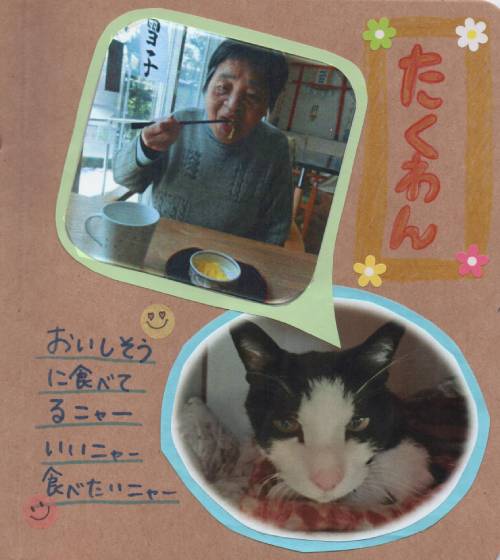 たくわん
おいしそう
に食べて
るニャー
いいニャー
食べたいニャー